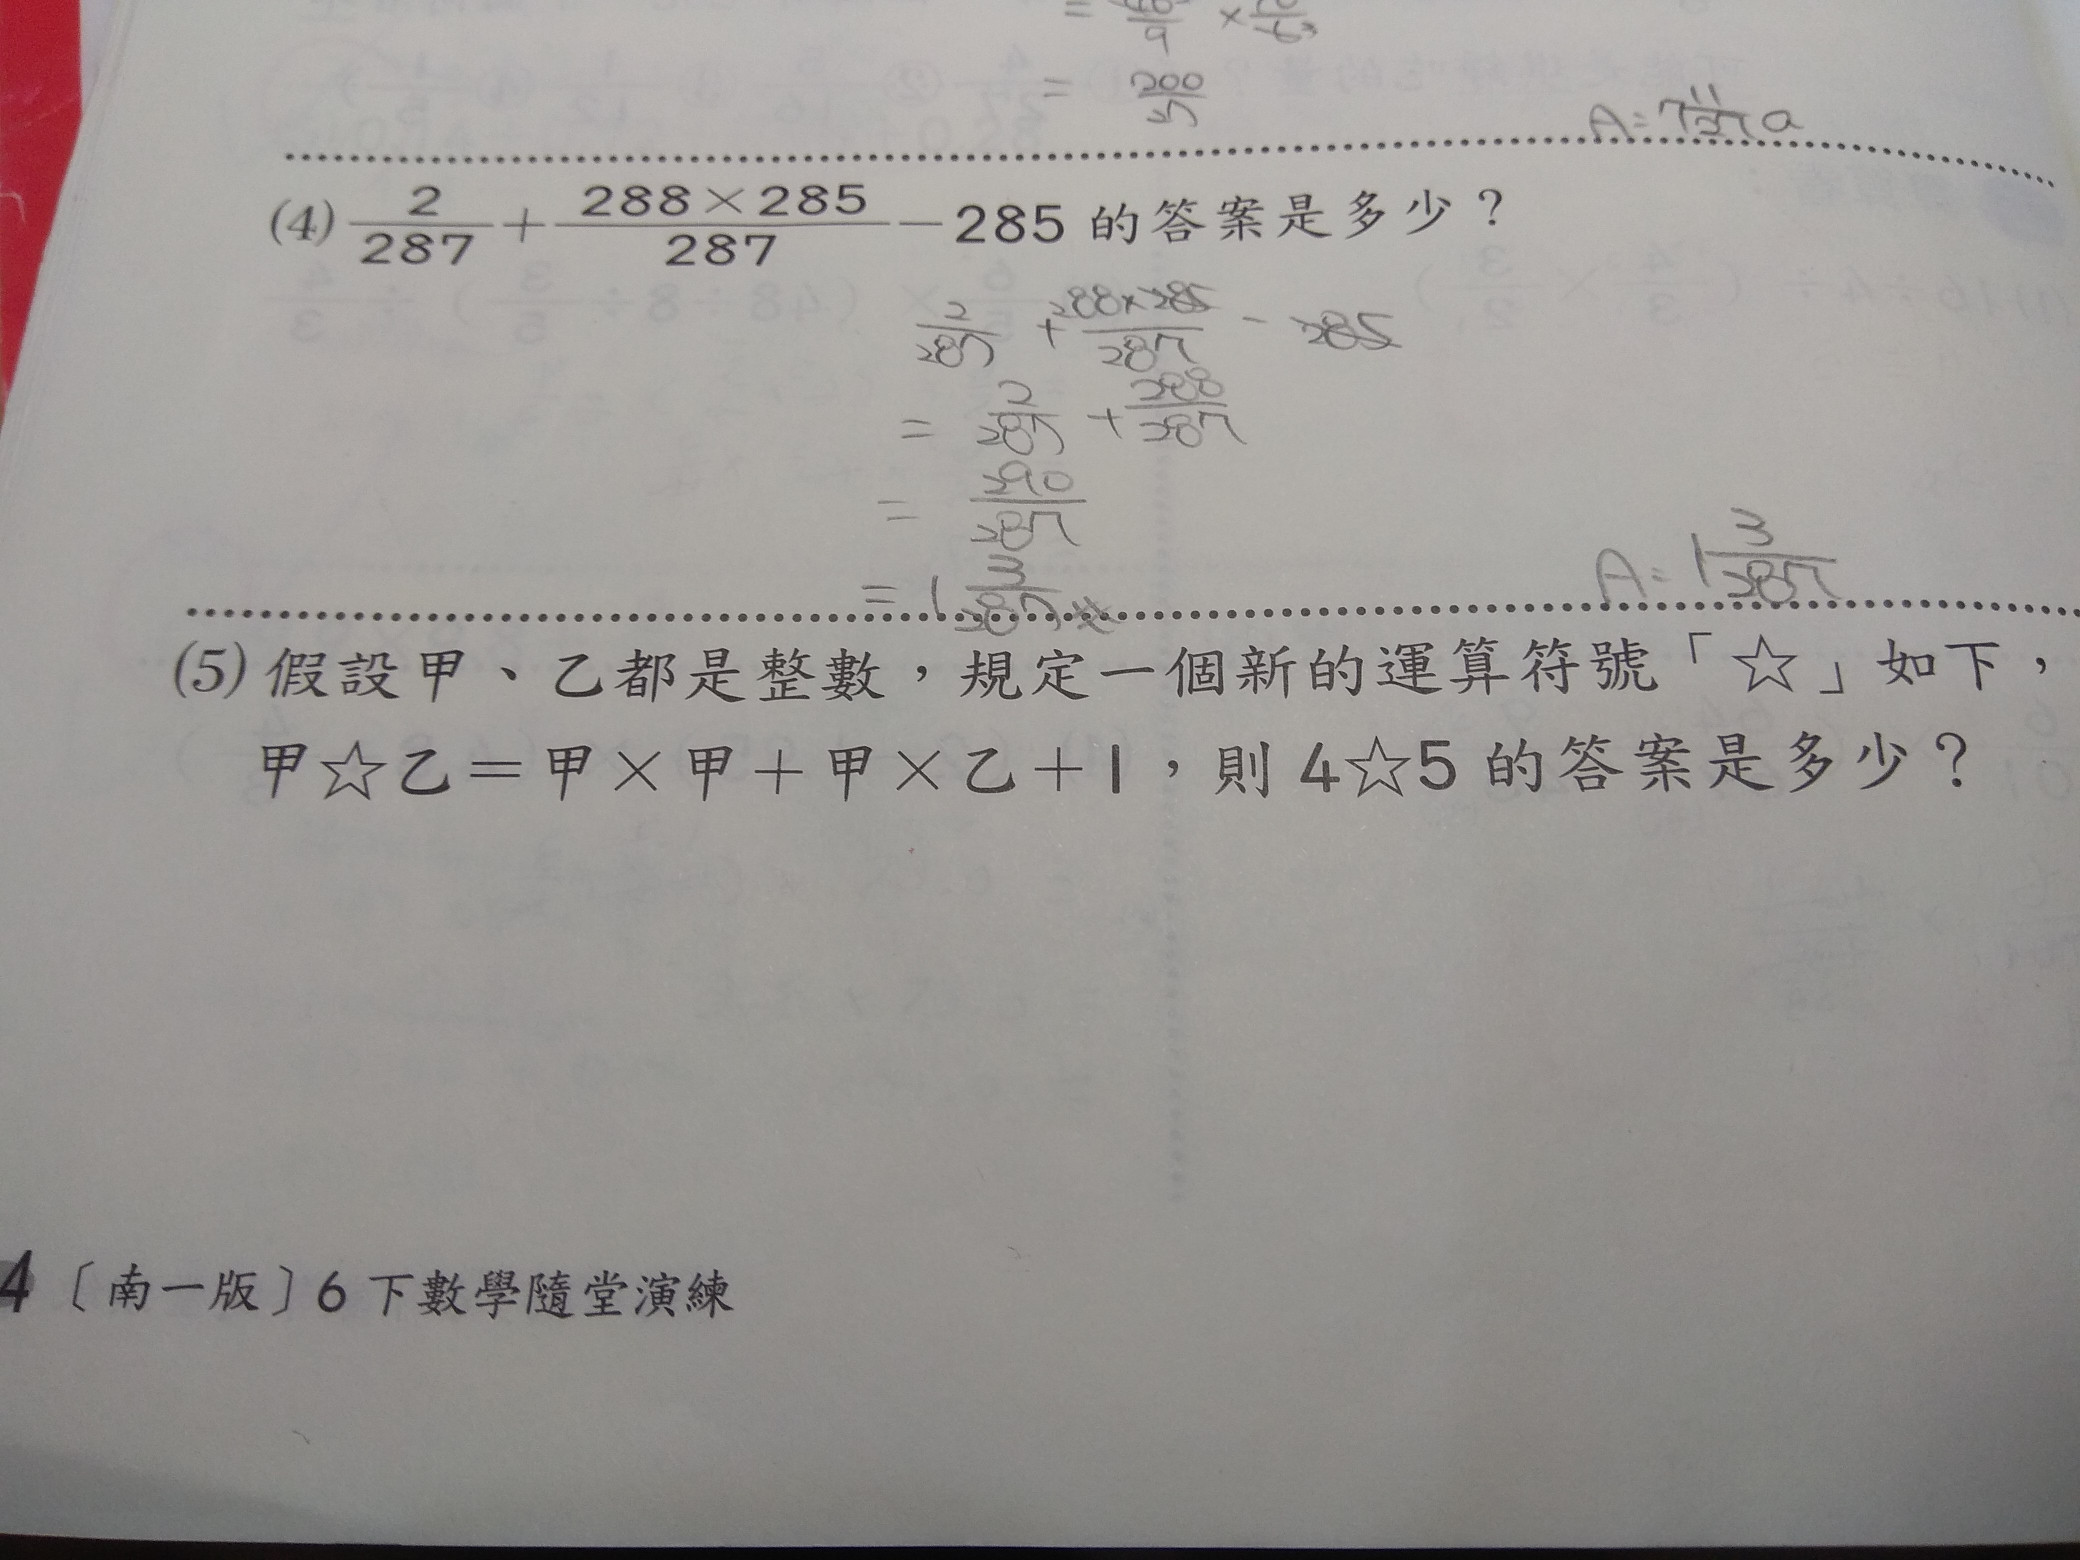 = 200/27
A=7 11/27 a
(4) 2/287 + 288×285/287 －285 的答案是多少？
2/287 + 288×285/287 - 285
= 2/287 + 288/287
= 290/287
= 1 3/287
A= 1 3/287
(5) 假設甲、乙都是整數，規定一個新的運算符號「☆」如下，
甲☆乙＝甲×甲＋甲×乙＋1，則 4☆5 的答案是多少？
4〔南一版〕6 下數學隨堂演練